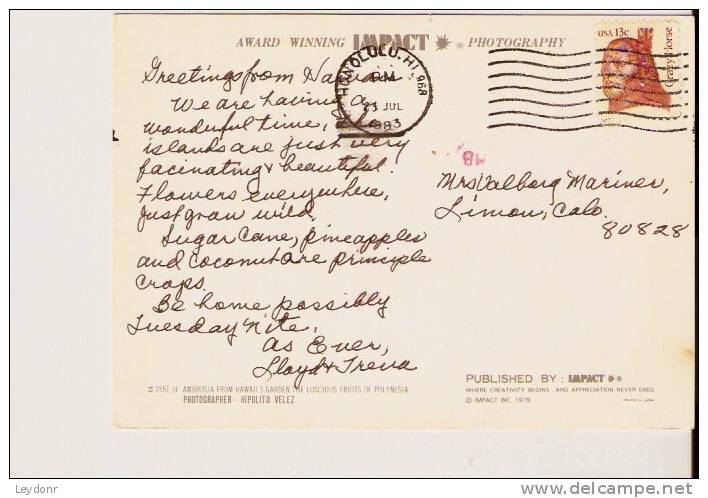 AWARD WINNING IMPACT ® PHOTOGRAPHY
USA 13c
Crazy Horse
HONOLULU, HI 968
PM
23 JUL
1983
Greetings from Hawaii
We are having a
wonderful time,
islands are just very
facinating & beautiful.
Flowers everywhere,
just grow wild.
Sugar Cane, pineapples
and coconut are principle
crops.
Be home possibly
Tuesday Nite.
As Ever,
Lloyd & Treva
MB
Mrs Valborg Mariner,
Limon, Colo.
80828
#1551-H AMBROSIA FROM HAWAII'S GARDEN, THE LUSCIOUS FRUITS OF POLYNESIA
PHOTOGRAPHER— HIPOLITO VELEZ
PUBLISHED BY: IMPACT ®
WHERE CREATIVITY BEGINS AND APPRECIATION NEVER ENDS
© IMPACT INC. 1979
PRINTED IN JAPAN
Leydonr
delcampe.net